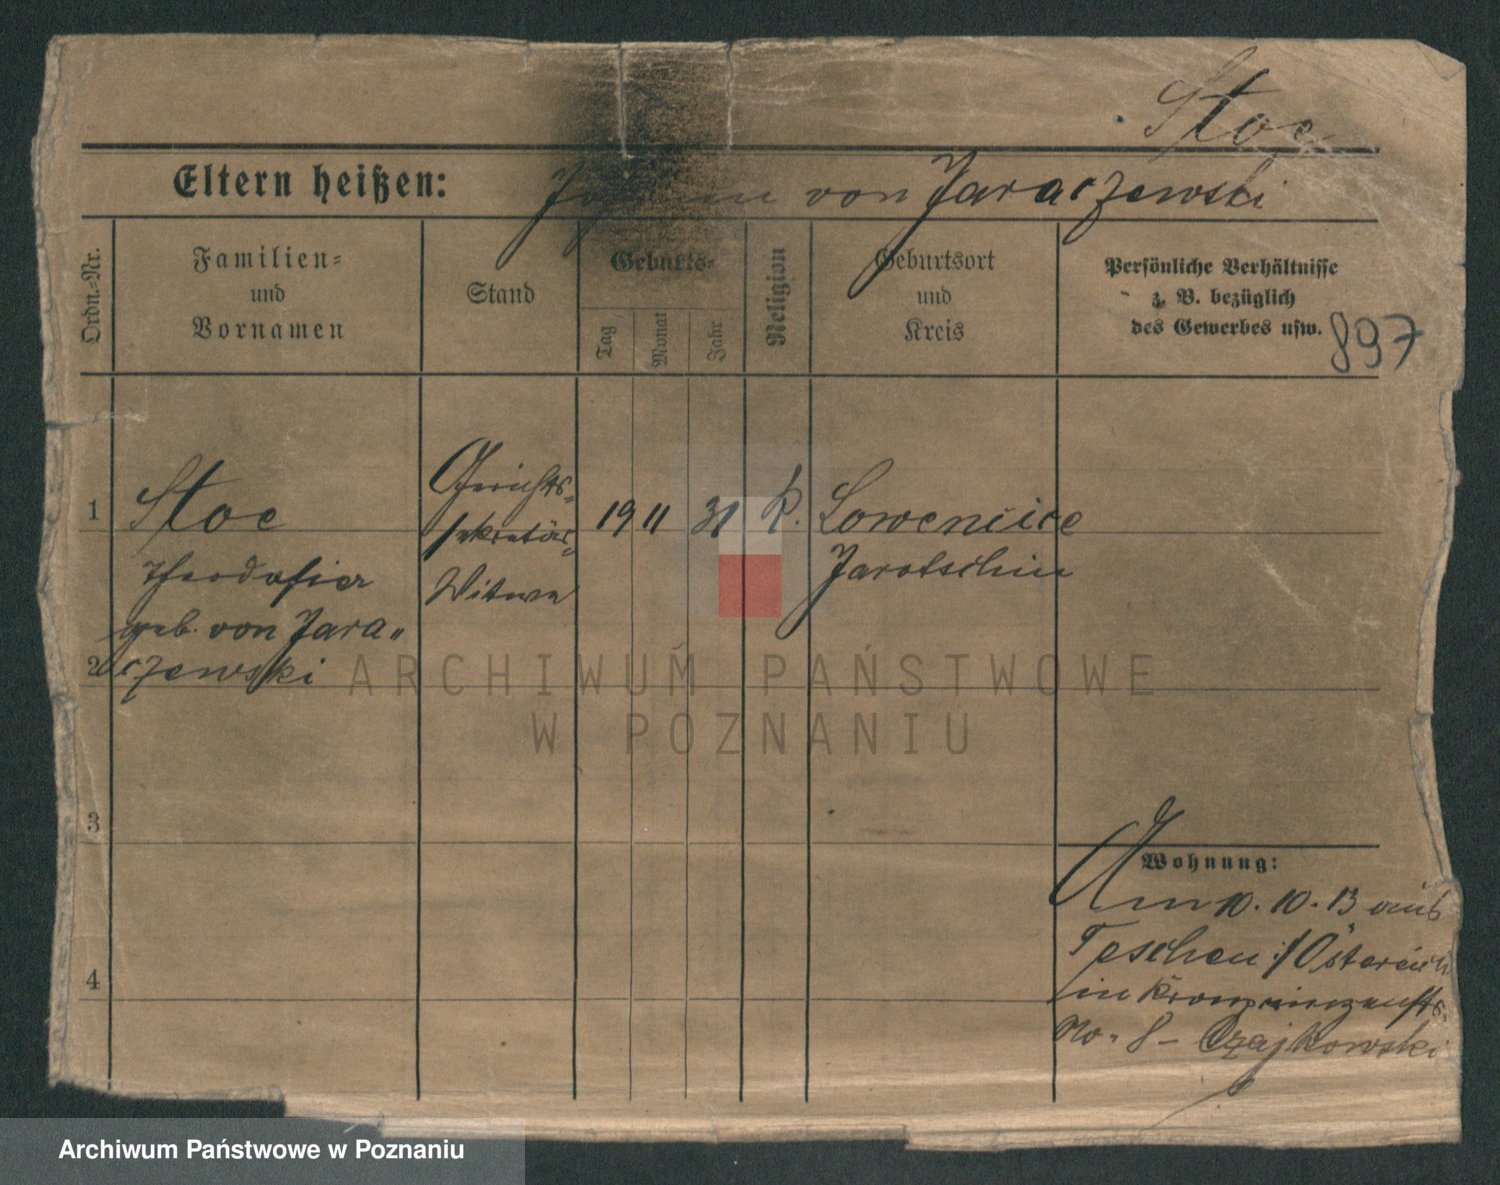 Stoe
Eltern heißen: von Jaraczewski
Ordn.-Nr.
Familien=
und
Vornamen
Stand
Geburts=
Tag
Monat
Jahr
Religion
Geburtsort
und
Kreis
Persönliche Verhältnisse
z. B. bezüglich
des Gewerbes usw.
897
1
Stoe
geb. von Jara"
czewski
Gerichts=
sekretär=
Witwe
19 11 31 K.
Lowencice
Jarotschin
2
3
4
Wohnung:
Am 10. 10. 13 aus
Teschen i/Östereich
in
No. 8 - Czajkowski
ARCHIWUM PAŃSTWOWE
W POZNANIU
Archiwum Państwowe w Poznaniu